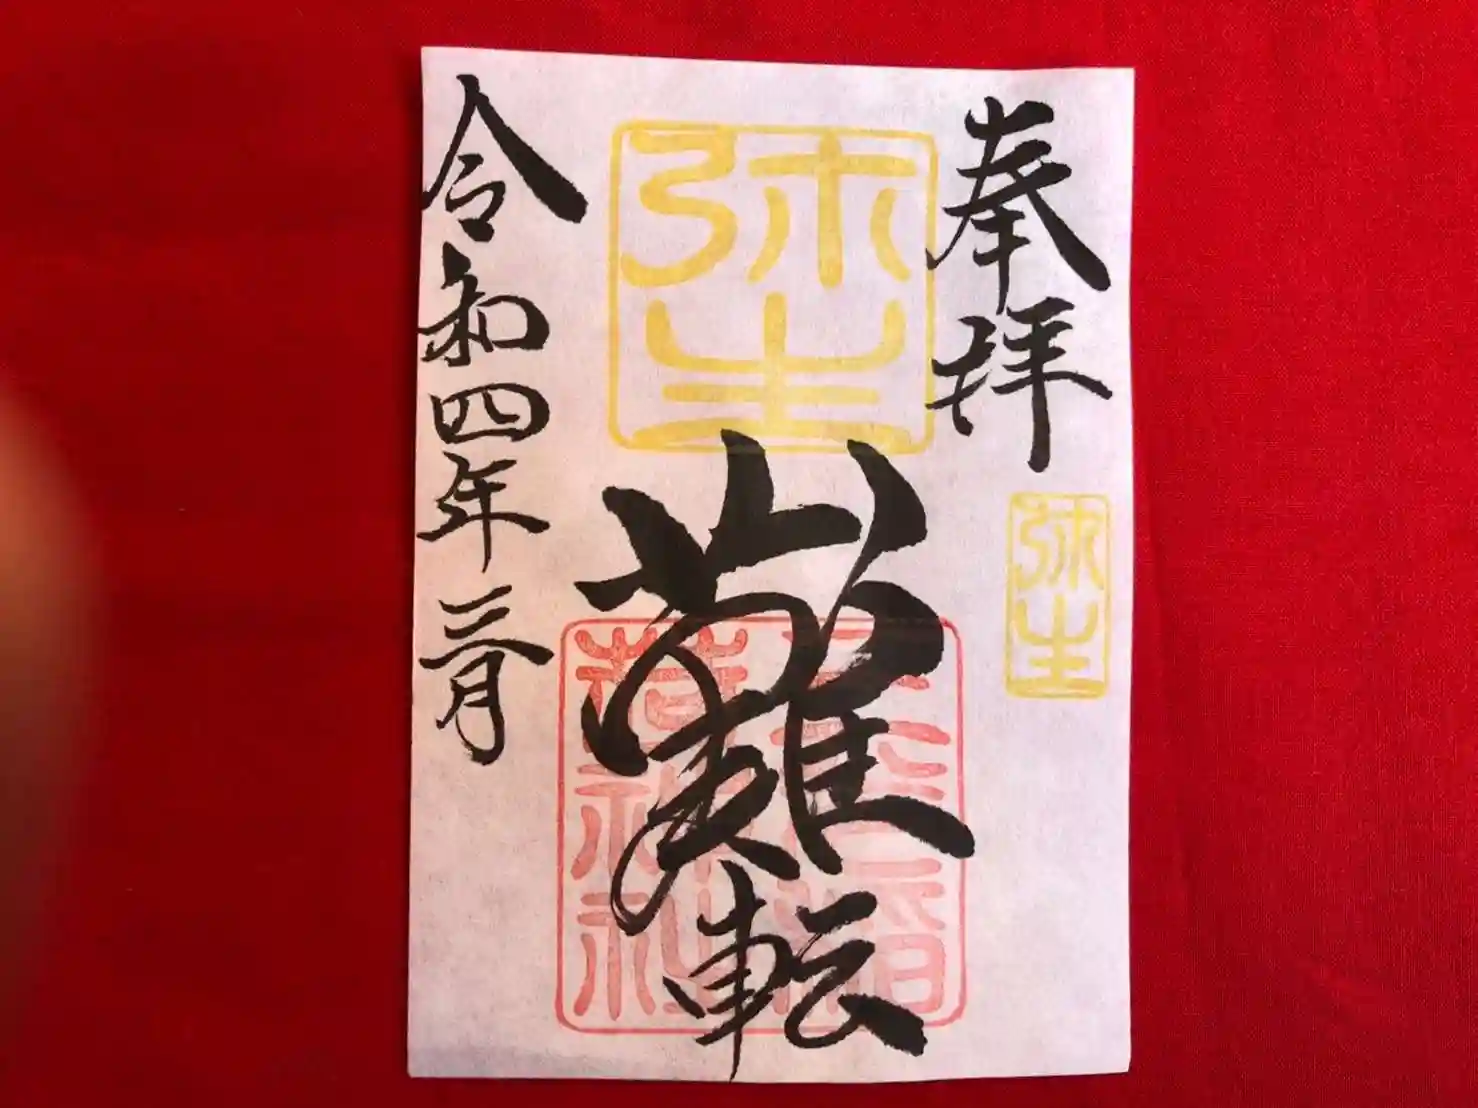 奉拝
弥生
弥生
難転
令和四年三月